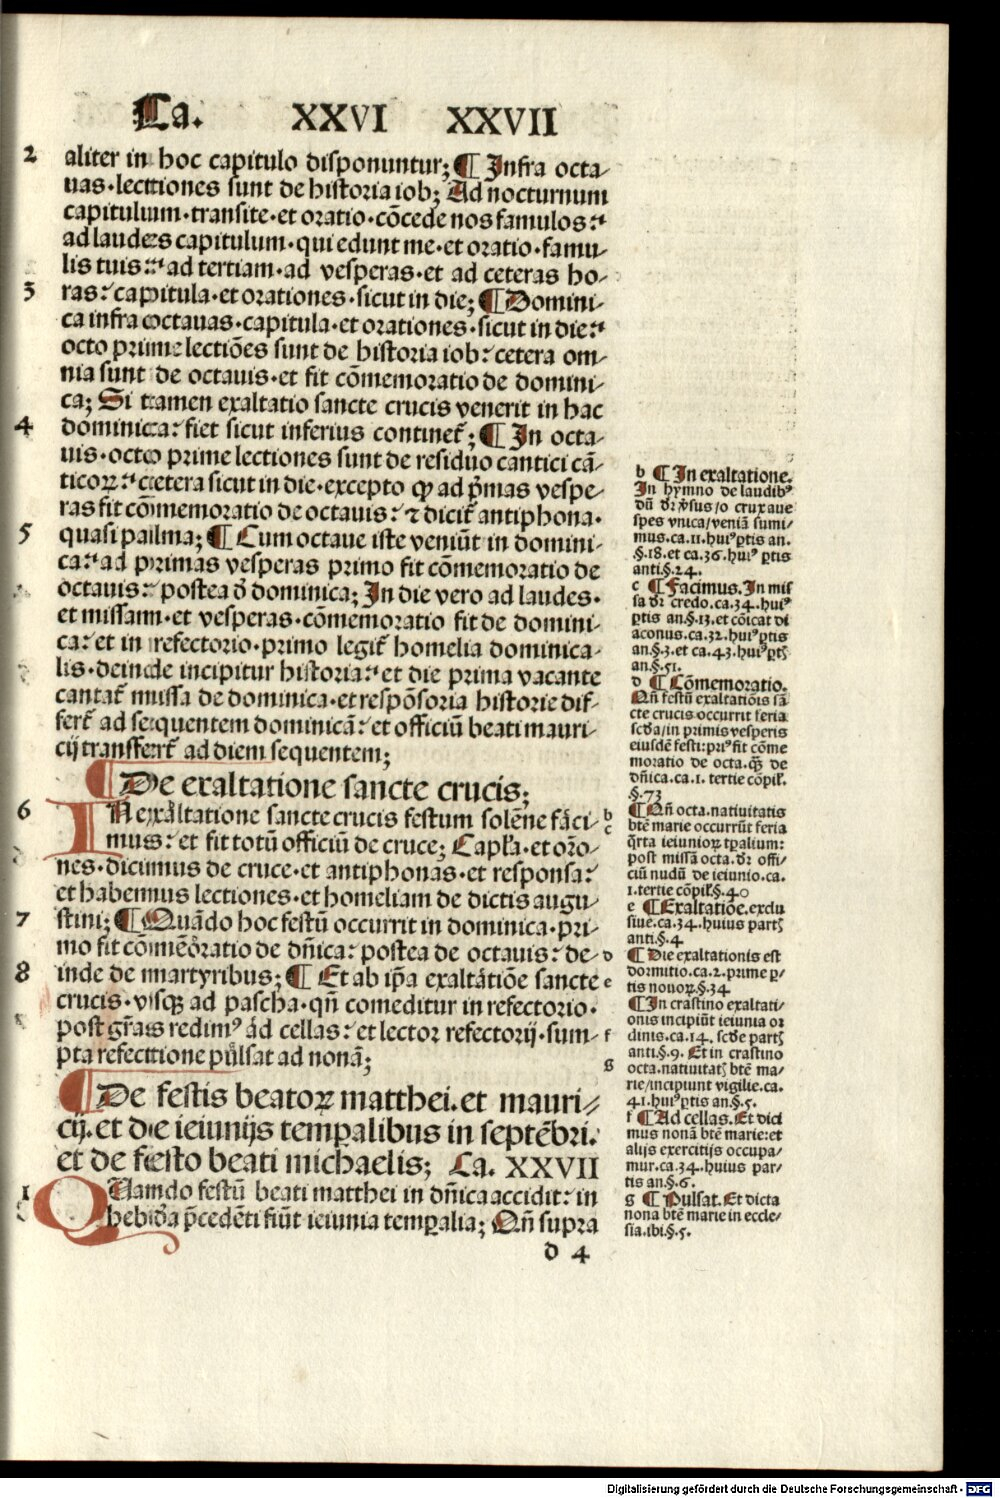 Ca. XXVI XXVII
2 aliter in hoc capitulo disponuntur; ¶ Infra octa⸗
uas·lectiones sunt de historia iob; Ad nocturnum
capitulum·transite·et oratio·cōcede nos famulos:·
ad laudes capitulum·qui edunt me·et oratio·famu⸗
lis tuis:·ad tertiam·ad vesperas·et ad ceteras ho⸗
3 ras:capitula·et orationes·sicut in die; ¶ Domini⸗
ca infra octauas·capitula·et orationes·sicut in die:·
octo prime lectiōes sunt de historia iob:cetera om⸗
nia sunt de octauis·et fit cōmemoratio de domini⸗
ca; Si tamen exaltatio sancte crucis venerit in hac
4 dominica:fiet sicut inferius continet᷑; ¶ In octa⸗
uis·octo prime lectiones sunt de residuo cantici cā⸗
ticoꝝ:·cetera sicut in die·excepto ꝙ ad p̄mas vespe⸗
ras fit cōmemoratio de octauis:⁊ dicit᷑ antiphona·
5 quasi palma; ¶ Cum octaue iste veniūt in domini⸗
ca:·ad primas vesperas primo fit cōmemoratio de
octauis:postea đ dominica; In die vero ad laudes·
et missam·et vesperas·cōmemoratio fit de domini⸗
ca:et in refectorio·primo legit᷑ homelia dominica⸗
lis·deinde incipitur historia:·et die prima vacante
cantat᷑ missa de dominica·et respōsoria historie dif⸗
fert᷑ ad sequentem dominicā:et officiū beati mauri⸗
cij transffert᷑ ad diem sequentem;
¶ De exaltatione sancte crucis;
6 IN exaltatione sancte crucis festum solēne faci⸗ b c
mus:et fit totū officiū de cruce; Capl'a·et orōo⸗
nes·dicimus de cruce·et antiphonas·et responsa:
et habemus lectiones·et homeliam de dictis augu⸗
7 stini; ¶ Quādo hoc festū occurrit in dominica·pri⸗
mo fit cōmemoratio de dn̄ica:postea de octauis:de⸗ d
8 inde de martyribus; ¶ Et ab ip̄a exaltatiōe sancte e
crucis·vsqꝫ ad pascha·qn̄ comeditur in refectorio·
post gr̄as redimꝰ ad cellas:et lector refectorij·sum⸗ f
pta refectione pulsat ad nonā; g
¶ De festis beatoꝝ matthei.et mauri⸗
cij.et de ieiunijs temꝑalibus in septēbri.
et de festo beati michaelis; Ca. XXVII
1 QUando festū beati matthei in dn̄ica accidit:in
hebdōa p̄cedēti fiūt ieiunia temꝑalia; Qn̄ supra
d 4
b ¶ In exaltatione.
In hymno de laudibꝰ
dū dr̄ v̄sus/o crux aue
spes vnica/veniā sumi⸗
mus.ca.11.huiꝰ ꝑtis an.
§.18.et ca.36.huiꝰ ꝑtis
anti.§.24.
c ¶ Facimus.In mis
sa dr̄ credo.ca.34.huiꝰ
ꝑtis an.§.13.et cōicat di
aconus.ca.32.huiꝰ ꝑtis
an.§.3.et ca.43.huiꝰ ꝑtꝭ
an.§.51.
d ¶ Cōmemoratio.
Qn̄ festū exaltatiōis sā
cte crucis occurrit feria
scđa/in primis vesperis
eiusdē festi:priꝰ fit cōme
moratio de octa.qꝫ de
dn̄ica.ca.1. tertie cōpil'.
§.73
¶ Qn̄ octa.natiuitatis
btē marie occurrūt feria
q̄rta ieiunioꝝ tꝑalium:
post missā octa.dr̄ offi⸗
ciū nudū de ieiunio.ca.
1.tertie cōpil'.§.40
e ¶ Exaltatiōe.exclu
siue.ca.34.huius partꝭ
anti.§.4
¶ Die exaltationis est
dormitio.ca.2.prime ꝑ⸗
tis nouoꝝ.§.34
¶ In crastino exaltati⸗
onis incipiūt ieiunia or
dinis.ca.14. scđe partꝭ
anti.§.9. Et in crastino
octa.natiuitatꝭ btē ma⸗
rie/incipiunt vigilie.ca.
41.huiꝰ ꝑtis an.§.5.
f ¶ Ad cellas.Et dici
mus nonā btē marie:et
alijs exercitijs occupa⸗
mur.ca.34.huius par⸗
tis an.§.6.
g ¶ Pulsat.Et dicta
nona btē marie in eccle⸗
sia.ibi.§.5.
Digitalisierung gefördert durch die Deutsche Forschungsgemeinschaft · DFG